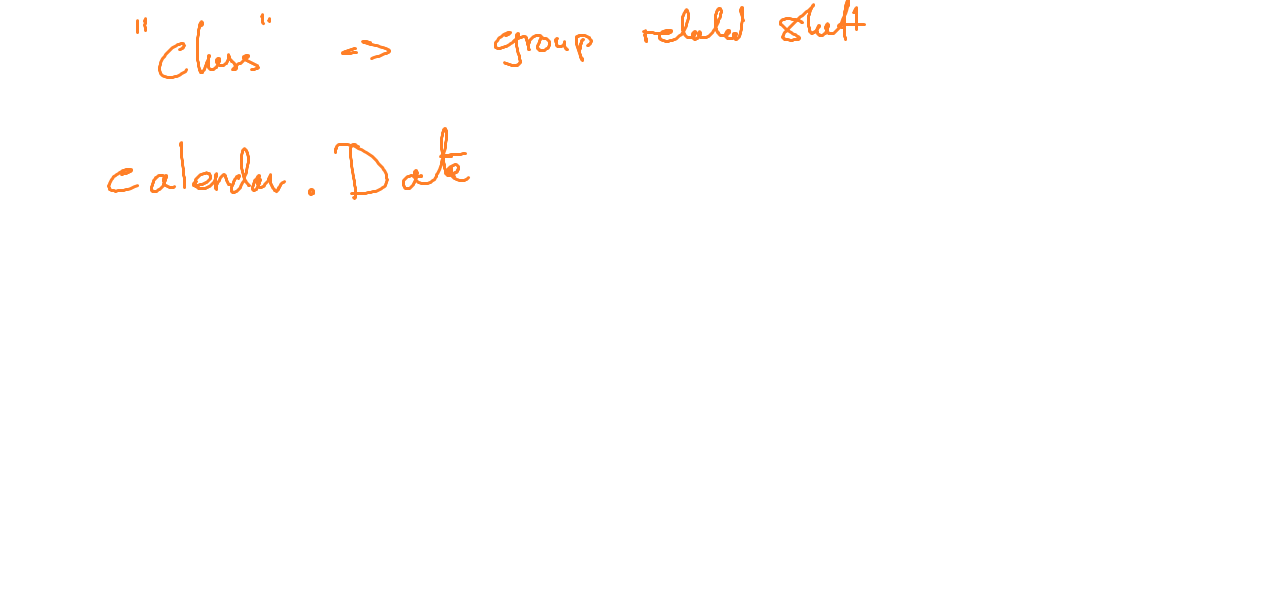 "Class" => group related stuff
calendar. Date